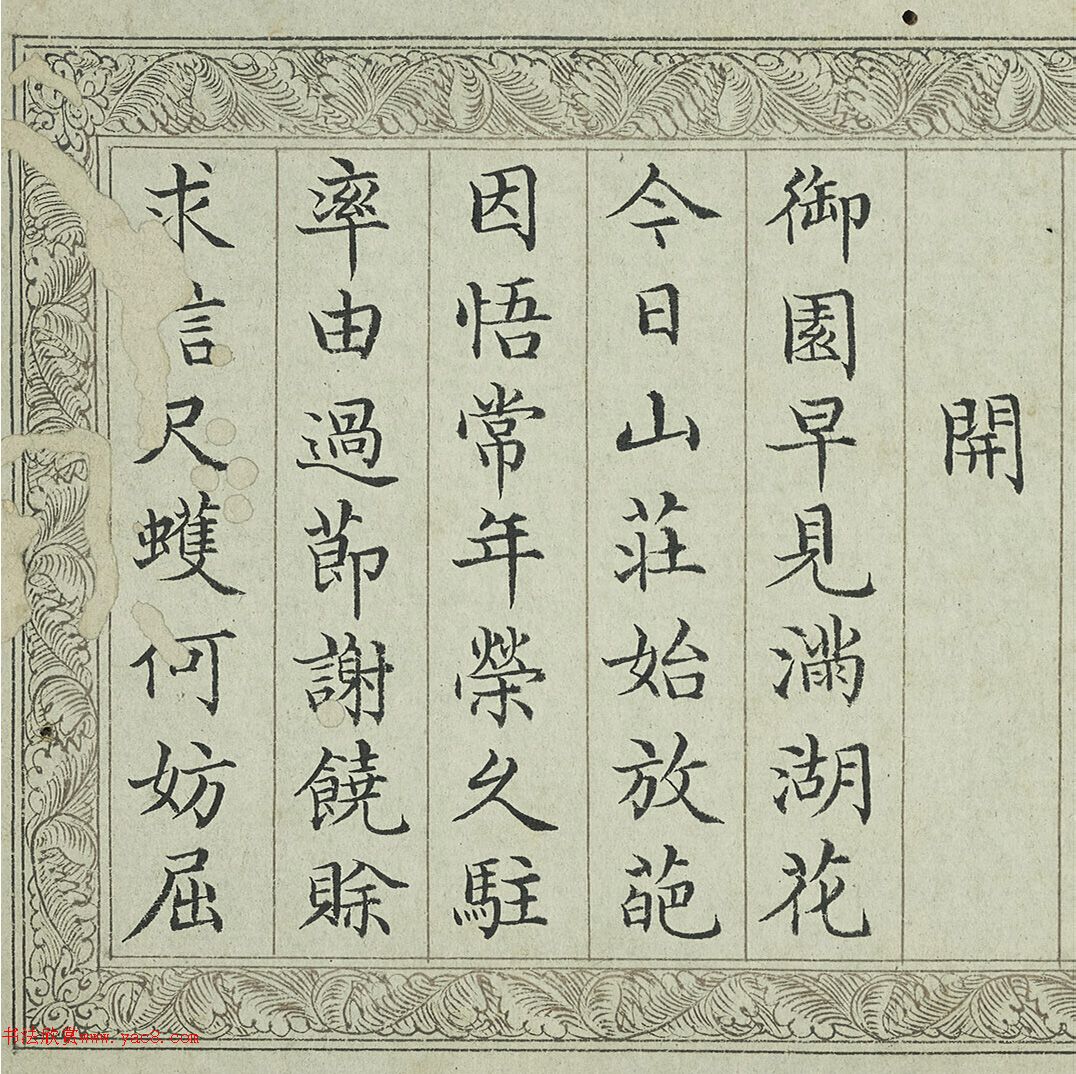 開
御園早見滿湖花
今日山莊始放葩
因悟常年榮久駐
率由過莭謝饒賒
求言尺蠖何妨屈
书法欣赏www.yac8.com